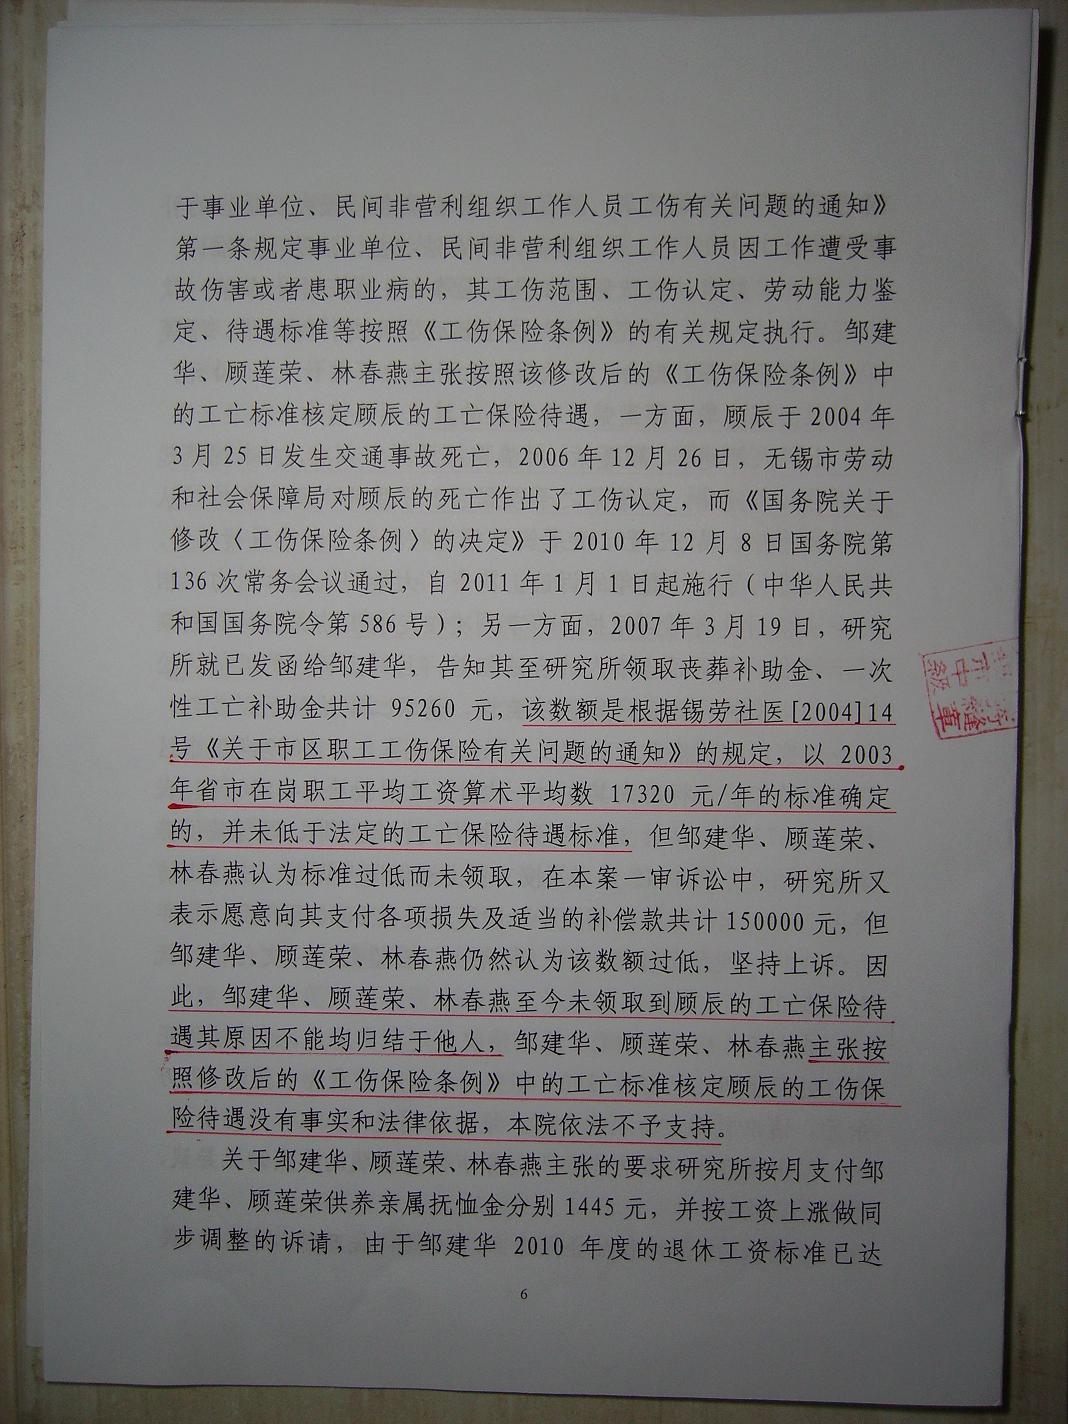 于事业单位、民间非营利组织工作人员工伤有关问题的通知》
第一条规定事业单位、民间非营利组织工作人员因工作遭受事
故伤害或者患职业病的，其工伤范围、工伤认定、劳动能力鉴
定、待遇标准等按照《工伤保险条例》的有关规定执行。邹建
华、顾莲荣、林春燕主张按照该修改后的《工伤保险条例》中
的工亡标准核定顾辰的工亡保险待遇，一方面，顾辰于 2004 年
3 月 25 日发生交通事故死亡，2006 年 12 月 26 日，无锡市劳动
和社会保障局对顾辰的死亡作出了工伤认定，而《国务院关于
修改〈工伤保险条例〉的决定》于 2010 年 12 月 8 日国务院第
136 次常务会议通过，自 2011 年 1 月 1 日起施行（中华人民共
和国国务院令第 586 号）；另一方面，2007 年 3 月 19 日，研究
所就已发函给邹建华，告知其至研究所领取丧葬补助金、一次
性工亡补助金共计 95260 元，该数额是根据锡劳社医[2004]14
号《关于市区职工工伤保险有关问题的通知》的规定，以 2003
年省市在岗职工平均工资算术平均数 17320 元/年的标准确定
的，并未低于法定的工亡保险待遇标准，但邹建华、顾莲荣、
林春燕认为标准过低而未领取，在本案一审诉讼中，研究所又
表示愿意向其支付各项损失及适当的补偿款共计 150000 元，但
邹建华、顾莲荣、林春燕仍然认为该数额过低，坚持上诉。因
此，邹建华、顾莲荣、林春燕至今未领取到顾辰的工亡保险待
遇其原因不能均归结于他人，邹建华、顾莲荣、林春燕主张按
照修改后的《工伤保险条例》中的工亡标准核定顾辰的工伤保
险待遇没有事实和法律依据，本院依法不予支持。
关于邹建华、顾莲荣、林春燕主张的要求研究所按月支付邹
建华、顾莲荣供养亲属抚恤金分别 1445 元，并按工资上涨做同
步调整的诉请，由于邹建华 2010 年度的退休工资标准已达
6
市中级
缝章